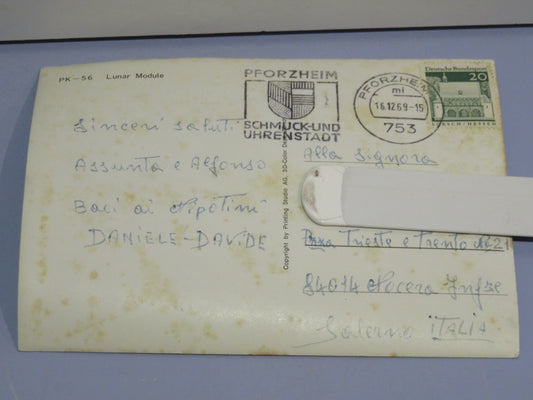 PK-56 Lunar Module
PFORZHEIM
SCHMUCK-UND
UHRENSTADT
PFORZHEIM
mi
16.12.69-15
753
Deutsche Bundespost
20
LORSCH/HESSEN
Sinceri saluti
Assunta e Alfonso
Baci ai Nipotini
DANIELE-DAVIDE
Copyright by Printing Studio AG, 3D-Color
Alla Signora
P.zza Trieste e Trento N 21
84014 Nocera Infre
Salerno ITALIA